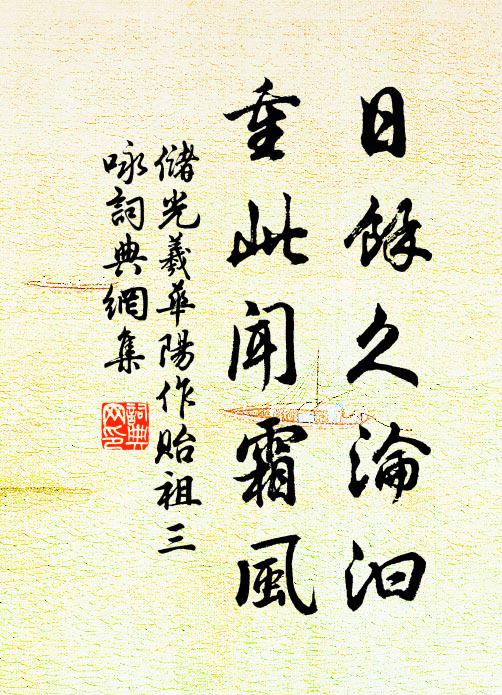 日餘久淪汨
重此聞霜風
儲光羲華陽作貽祖三
咏詞典網集
詞典
网印